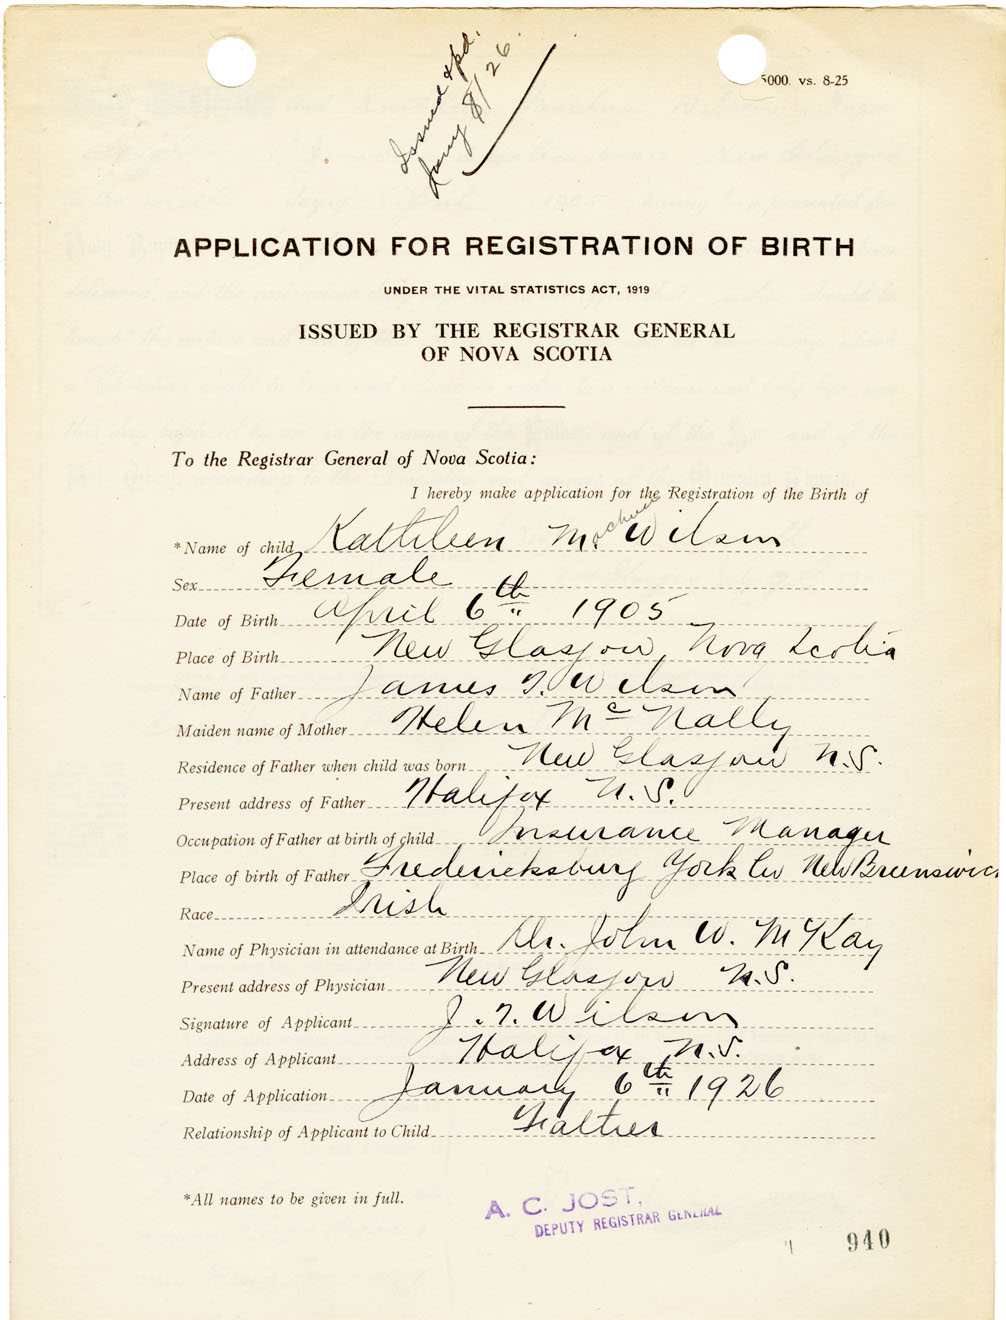 Issued & pd.
Jany 8/26.
5000. vs. 8-25
APPLICATION FOR REGISTRATION OF BIRTH
UNDER THE VITAL STATISTICS ACT, 1919
ISSUED BY THE REGISTRAR GENERAL
OF NOVA SCOTIA
To the Registrar General of Nova Scotia:
I hereby make application for the Registration of the Birth of
*Name of child Kathleen M. Wilson
Sex Female
Date of Birth April 6th 1905
Place of Birth New Glasgow Nova Scotia
Name of Father James T. Wilson
Maiden name of Mother Helen McNally
Residence of Father when child was born New Glasgow N.S.
Present address of Father Halifax N.S.
Occupation of Father at birth of child Insurance Manager
Place of birth of Father Fredericksburg York Co New Brunswick
Race Irish
Name of Physician in attendance at Birth Dr. John W. McKay
Present address of Physician New Glasgow N.S.
Signature of Applicant J. T. Wilson
Address of Applicant Halifax N.S.
Date of Application January 6th 1926
Relationship of Applicant to Child Father
*All names to be given in full.
A. C. JOST,
DEPUTY REGISTRAR GENERAL
940